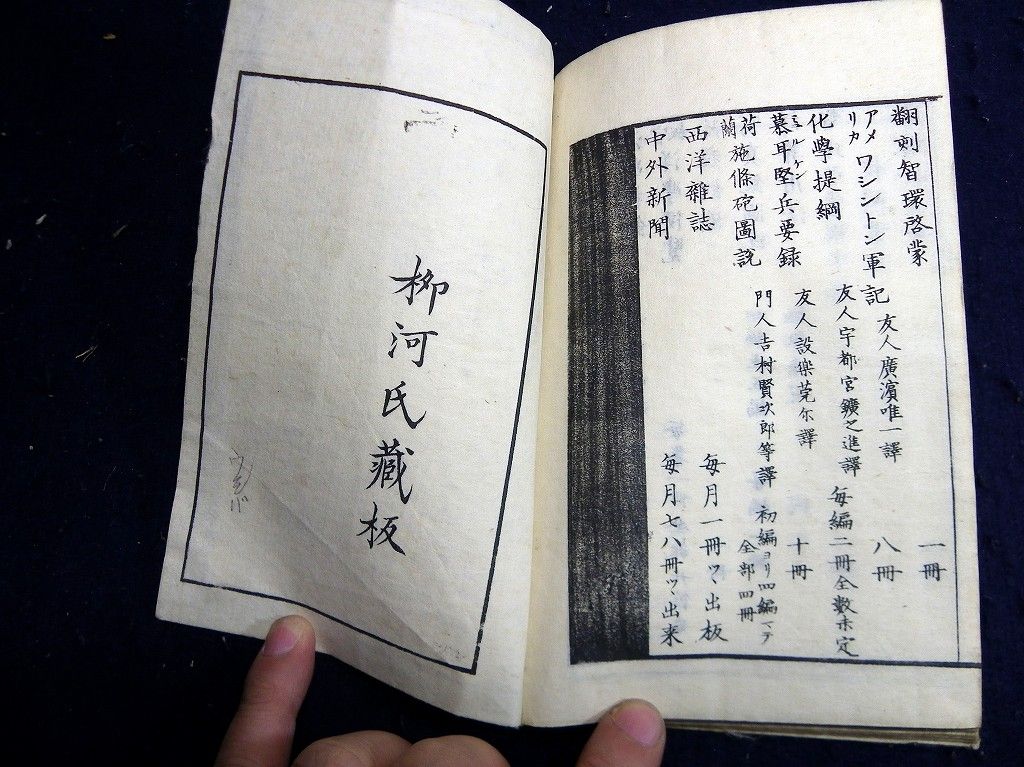 翻刻智環啓蒙 一冊
アメリカ ワシントン軍記 友人廣濱唯一譯 八冊
化學提綱 友人宇都宮鑛之進譯 毎編二冊全數未定
慕耳堅兵要録 ミルケン 友人設樂莞尓譯 十冊
荷蘭施條砲圖説 門人吉村賢次郎等譯 初編ヨリ四編マテ全部四冊
西洋雜誌 毎月一冊ツヽ出板
中外新聞 毎月七八冊ツヽ出来
柳河氏藏板